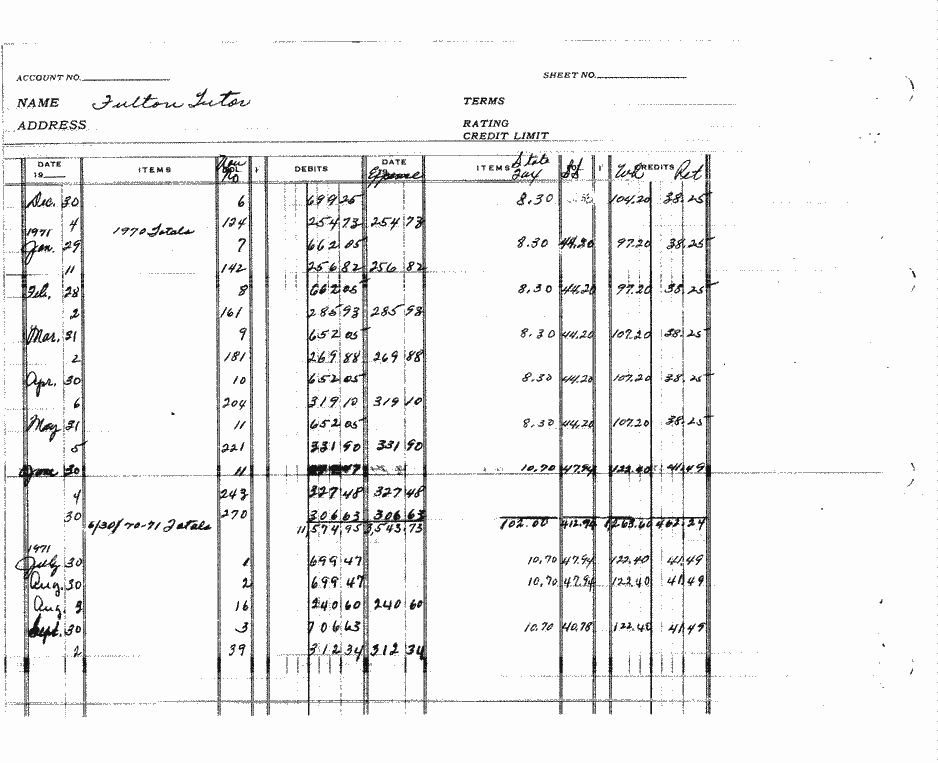 ACCOUNT NO. SHEET NO.
NAME Fulton Tutor TERMS
ADDRESS RATING
CREDIT LIMIT
DATE ITEMS DEBITS DATE ITEMS State CREDITS
19 No Expense Tax SS Wh Ret
Dec. 30 6 699 25 8.30 104.20 38.25
4 124 254 73 254 73
1971 1970 Totals
Jan. 29 7 662 05 8.30 44.20 97.20 38.25
11 142 256 82 256 82
Feb. 28 8 662 05 8.30 44.20 97.20 38.25
2 161 285 93 285 93
Mar. 31 9 652 05 8.30 44.20 107.20 38.25
2 181 269 88 269 88
Apr. 30 10 652 05 8.30 44.20 107.20 38.25
6 204 319 10 319 10
May 31 11 652 05 8.30 44.20 107.20 38.25
5 221 331 90 331 90
June 30 11 10.70 47.94 122.40 41.49
4 243 327 48 327 48
30 270 306 63 306 63
6/30/70-71 Totals 11,574.95 3,543.73 102.00 412.94 1263.60 462.24
1971
July 30 1 699 47 10.70 47.94 122.40 41.49
Aug. 30 2 699 47 10.70 47.94 122.40 41.49
Aug. 3 16 240 60 240 60
Sept. 30 3 706 63 10.70 40.78 122.40 41.49
2 39 312 34 312 34